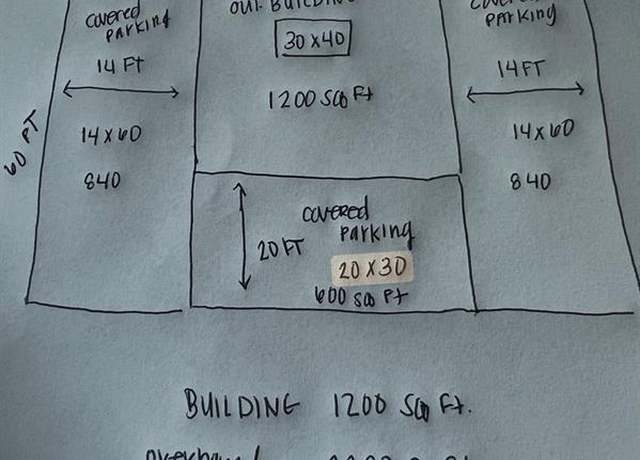 covered
parking
14 FT
60 FT
14 x 60
840
BUILDING
30 x 40
1200 SQ Ft
covered
parking
20 FT
20 x 30
600 SQ Ft
parking
14 FT
14 x 60
840
BUILDING 1200 SQ Ft.